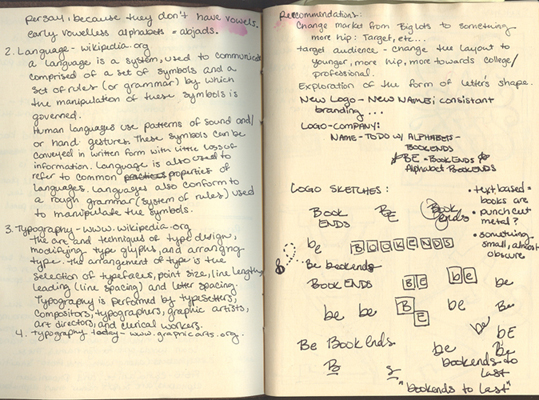 persay. because they don't have vowels.
early vowelless alphabets = abjads.
2. Language - wikipedia.org
a language is a system, used to communicate
comprised of a set of symbols and a
set of rules (or grammar) by which
the manipulation of these symbols is
governed.
Human languages use patterns of sound and/
or hand gestures. These symbols can be
conveyed in written form with little loss of
information. Language is also used to
refer to common properties of
languages. Languages also conform to
a rough grammar (system of rules) used
to manipulate the symbols.
3. Typography - www.wikipedia.org
The art and techniques of type design,
modifying type glyphs, and arranging
type. The arrangement of type is the
selection of typefaces, point size, line length,
leading (line spacing) and letter spacing.
Typography is performed by typesetters,
compositors, typographers, graphic artists,
art directors, and clerical workers.
4. Typography today - www.graphicarts.org.
Recommendations:
Change market from Big Lots to something
more hip: Target, etc...
target audience - change the layout to
younger, more hip, more towards college/
professional.
Exploration of the form of letter's shape.
New Logo - New Name; consistant
branding ...
Logo-Company:
Name - to do w/ Alphabets -
Bookends
BE - Bookends
Alphabet Bookends
Logo Sketches:
• text based =
books are
• punch cut
metal?
• something
small, almost
obscure
Book
Ends
BE
Book
Ends
be
BOOKENDS
Be bookends
Book Ends
BE
be
be
be
be
B
E
be
Be
be
bE
Be Book Ends
be
Be
bookends to
last
"bookends to last"